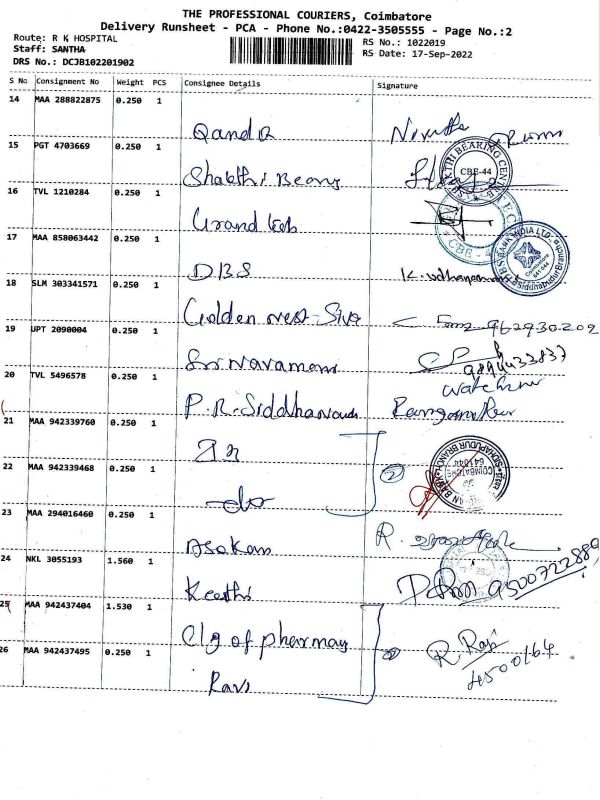 THE PROFESSIONAL COURIERS, Coimbatore
Delivery Runsheet - PCA - Phone No.:0422-3505555 - Page No.:2
Route: R K HOSPITAL
Staff: SANTHA
DRS No.: DCJB102201902
RS No.: 1022019
RS Date: 17-Sep-2022
S No Consignment No Weight PCS Consignee Details Signature
14 MAA 288822875 0.250 1
15 PGT 4703669 0.250 1 Shakthi
16 TVL 1210284 0.250 1 Grand
17 MAA 858063442 0.250 1 DBS
18 SLM 303341571 0.250 1 Golden
19 UPT 2090004 0.250 1 Sri Navamani 9894433837
20 TVL 5496578 0.250 1 P.R. watchman
21 MAA 942339760 0.250 1
22 MAA 942339468 0.250 1 -do- 2
23 MAA 294016460 0.250 1 Asokan R.
24 NKL 3055193 1.560 1 Keethi 9500722889
25 MAA 942437404 1.530 1 Clg of pharmay 2 R. Raji
26 MAA 942437495 0.250 1 Ravi 4500164
SHAKTHI BEARING CENTRE
CBE-44
DBS BANK INDIA LTD
Siddhapudur Branch
COIMBATORE
641044
SIDHAPUDUR BRANCH